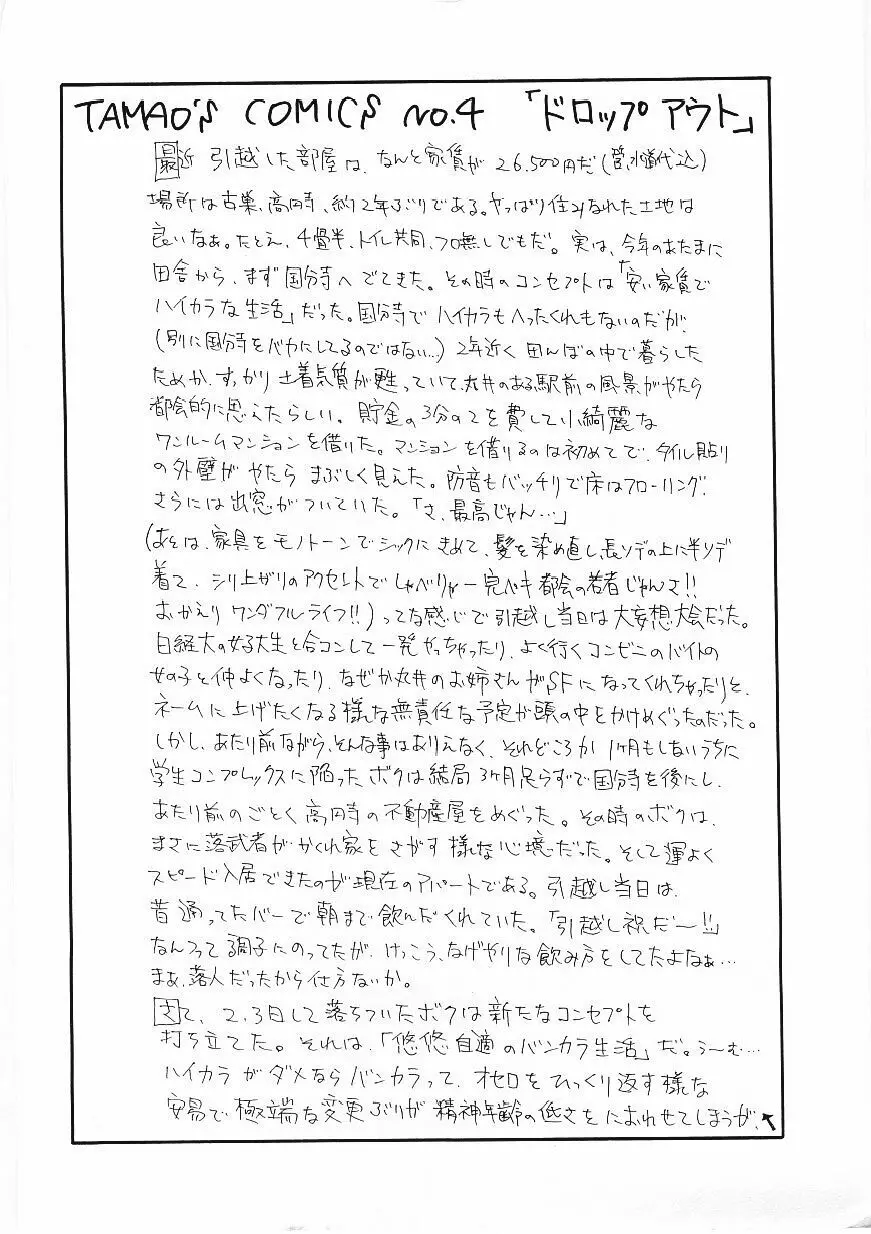 TAMAO'S COMICS No.4 「ドロップアウト」
最近 引越した部屋は、なんと家賃が 26.500円だ(管、水道代込)
場所は古巣、高円寺、約2年ぶりである。やっぱり住みなれた土地は
良いなぁ。たとえ、4畳半、トイレ共同、フロ無しでもだ。実は、今年のあたまに
田舎から、まず国分寺へでてきた。その時のコンセプトは「安い家賃で
ハイカラな生活」だった。国分寺でハイカラもへったくれもないのだが、
(別に国分寺をバカにしてるのではない…)2年近く田んぼの中で暮らした
ためか、すっかり土着気質が甦っていて、丸井のある駅前の風景がやたら
都会的に思えたらしい。貯金の3分の2を費して小綺麗な
ワンルームマンションを借りた。マンションを借りるのは初めてで、タイル貼り
の外壁がやたらまぶしく見えた。防音もバッチリで床はフローリング、
さらには出窓がついていた。「さ、最高じゃん…」
(あとは、家具をモノトーンでシックにきめて、髪を染め直し、長ソデの上に半ソデ
着て、シリ上がりのアクセントでしゃべりゃー完ペキ都会の若者じゃんさ!!
おかえりワンダフルライフ!!)ってな感じで引越し当日は大妄想大会だった。
日経大の女子大生と合コンして一発やっちゃったり、よく行くコンビニのバイトの
女の子と仲よくなったり、なぜか丸井のお姉さんがSFになってくれちゃったりと、
ネームに上げたくなる様な無責任な予定が頭の中をかけめぐったのだった。
しかし、あたり前ながら、そんな事はありえなく、それどころか1ヶ月もしないうちに
学生コンプレックスに陥ったボクは結局3ヶ月足らずで国分寺を後にし、
あたり前のごとく高円寺の不動産屋をめぐった。その時のボクは、
まさに落武者がかくれ家をさがす様な心境だった。そして運よく
スピード入居できたのが現在のアパートである。引越し当日は、
昔通ってたバーで朝まで飲んだくれていた。「引越し祝だ〜!!」
なんつって調子にのってたが、けっこう、なげやりな飲み方をしてたよなぁ…
まぁ、落人だったから仕方ないか。
さて、2、3日して落ちついたボクは新たなコンセプトを
打ち立てた。それは、「悠悠自適のバンカラ生活」だ。う〜む…
ハイカラがダメならバンカラって、オセロをひっくり返す様な
安易で極端な変更ぶりが精神年齢の低さをにおわせてしまうが、